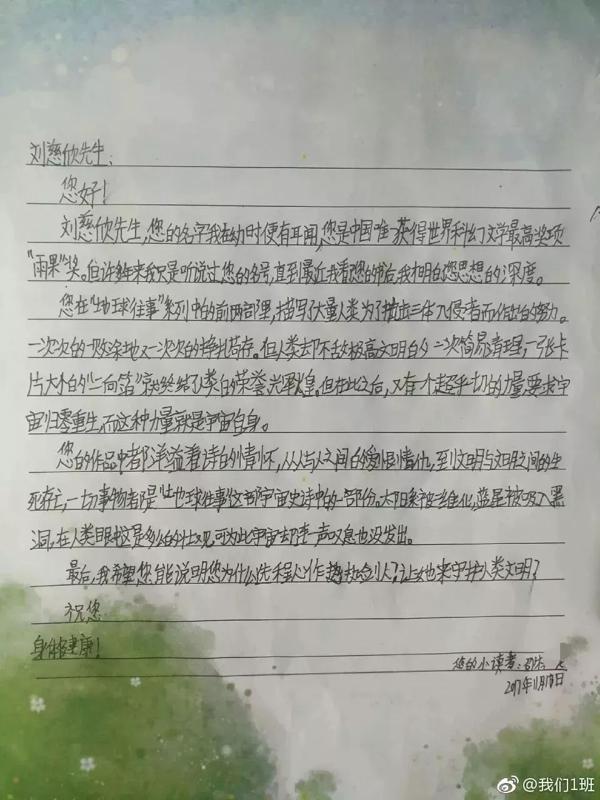 刘慈欣先生:
您好!
刘慈欣先生,您的名字我在幼时便有耳闻,您是中国唯一获得世界科幻文学最高奖项
"雨果"奖。但许多年来我只是听说过您的名号,直到最近我看您的书后,我才明白您思想的深度。
您在"地球往事"系列中的前两部里,描写了大量人类为了抵击三体入侵者而作出的努力。
一次次的一败涂地又一次次的挣扎苟存。但人类却不敌极高文明的一次简易清理,一张卡
片大小的"二向箔"就终结了人类的荣誉光辉。但在此之后,又有一个超乎一切的力量要求宇
宙归零重生,而这种力量就是宇宙自身。
您的作品中都洋溢着诗的外情怀,从人与人之间的爱恨情仇,至到文明与文明之间的生
死存亡,一切事物都是"地球往事"这部宇宙史诗中的一部份。太阳系被二维化,蓝星被吸入黑
洞,在人类眼中这是多么的壮观,可为此宇宙却连一声叹息也没发出。
最后,我希望您能说明您为什么先程心作为执剑人?让她来守护人类文明?
祝您
身体健康!
您的小读者:
2017年11月18日
@我们1班